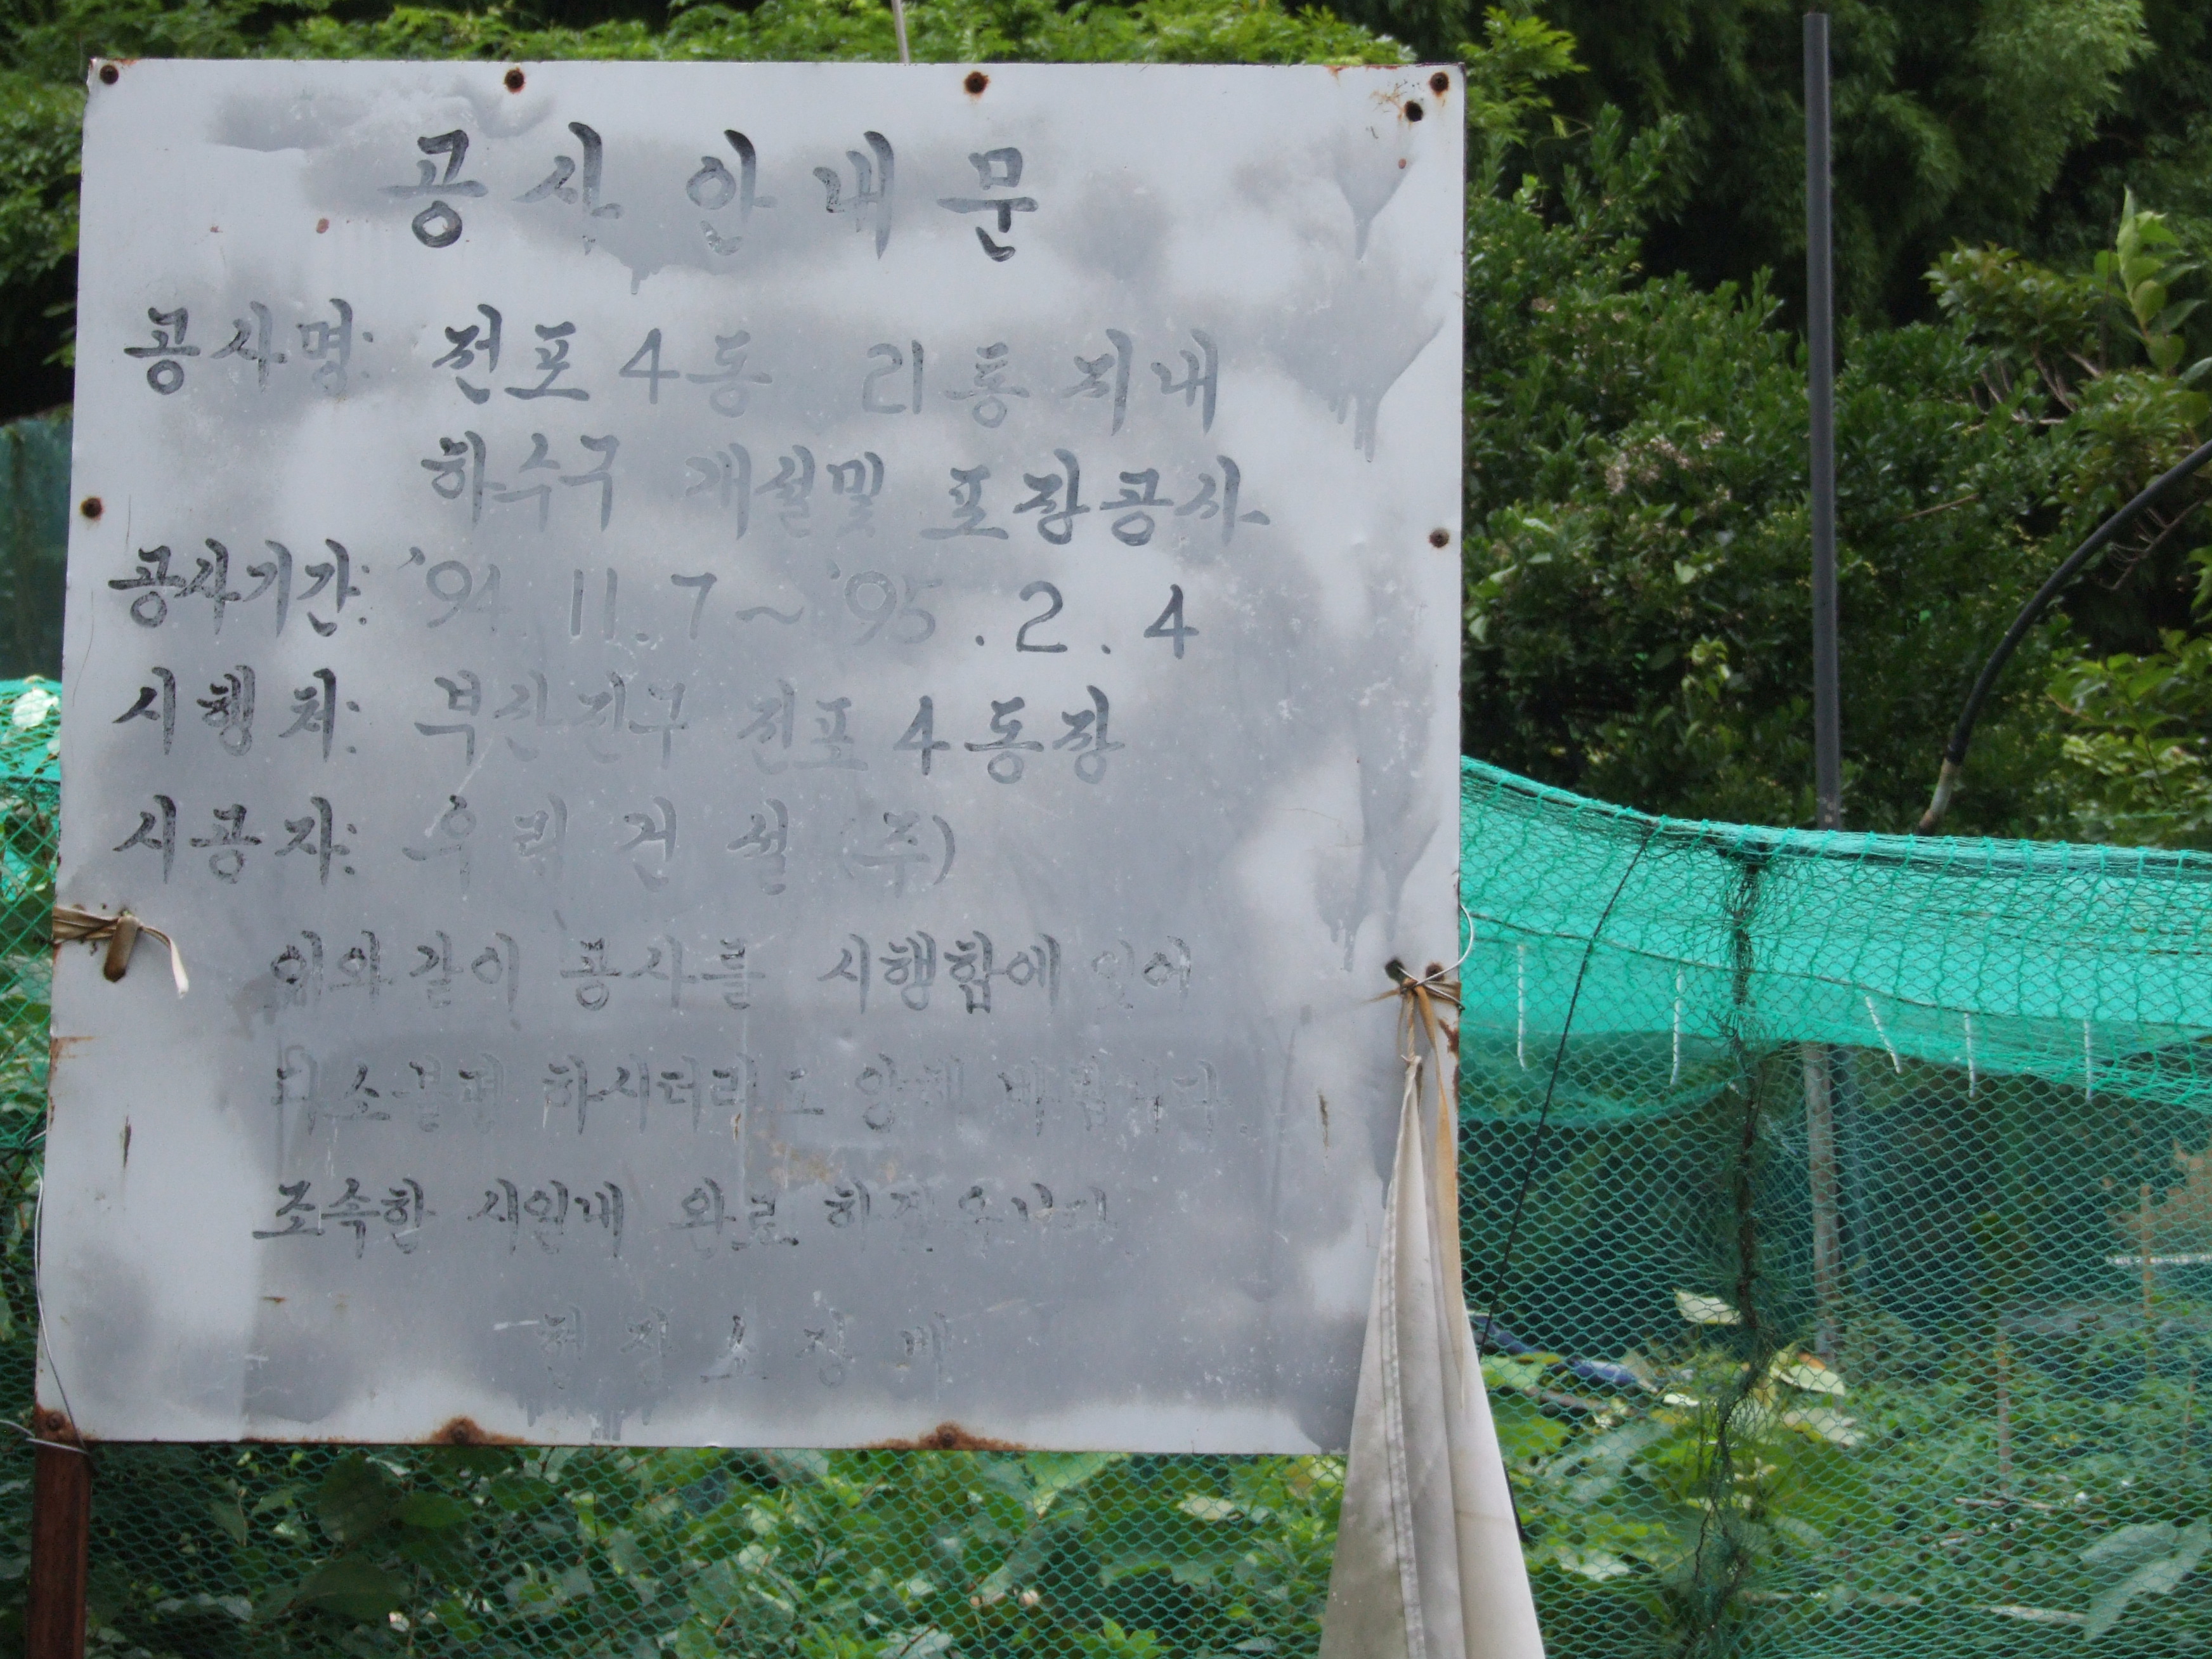 공사안내문
공사명: 전포4동 21통 지내
하수구 개설및 포장공사
공사기간: '94. 11. 7 ~ '95. 2. 4
시행처: 부산진구 전포4동장
시공자: 우리건설(주)
이와같이 공사를 시행함에 있어
다소불편 하시더라도 양해 바랍니다.
조속한 시일내 완료 하겠습니다
현장소장배